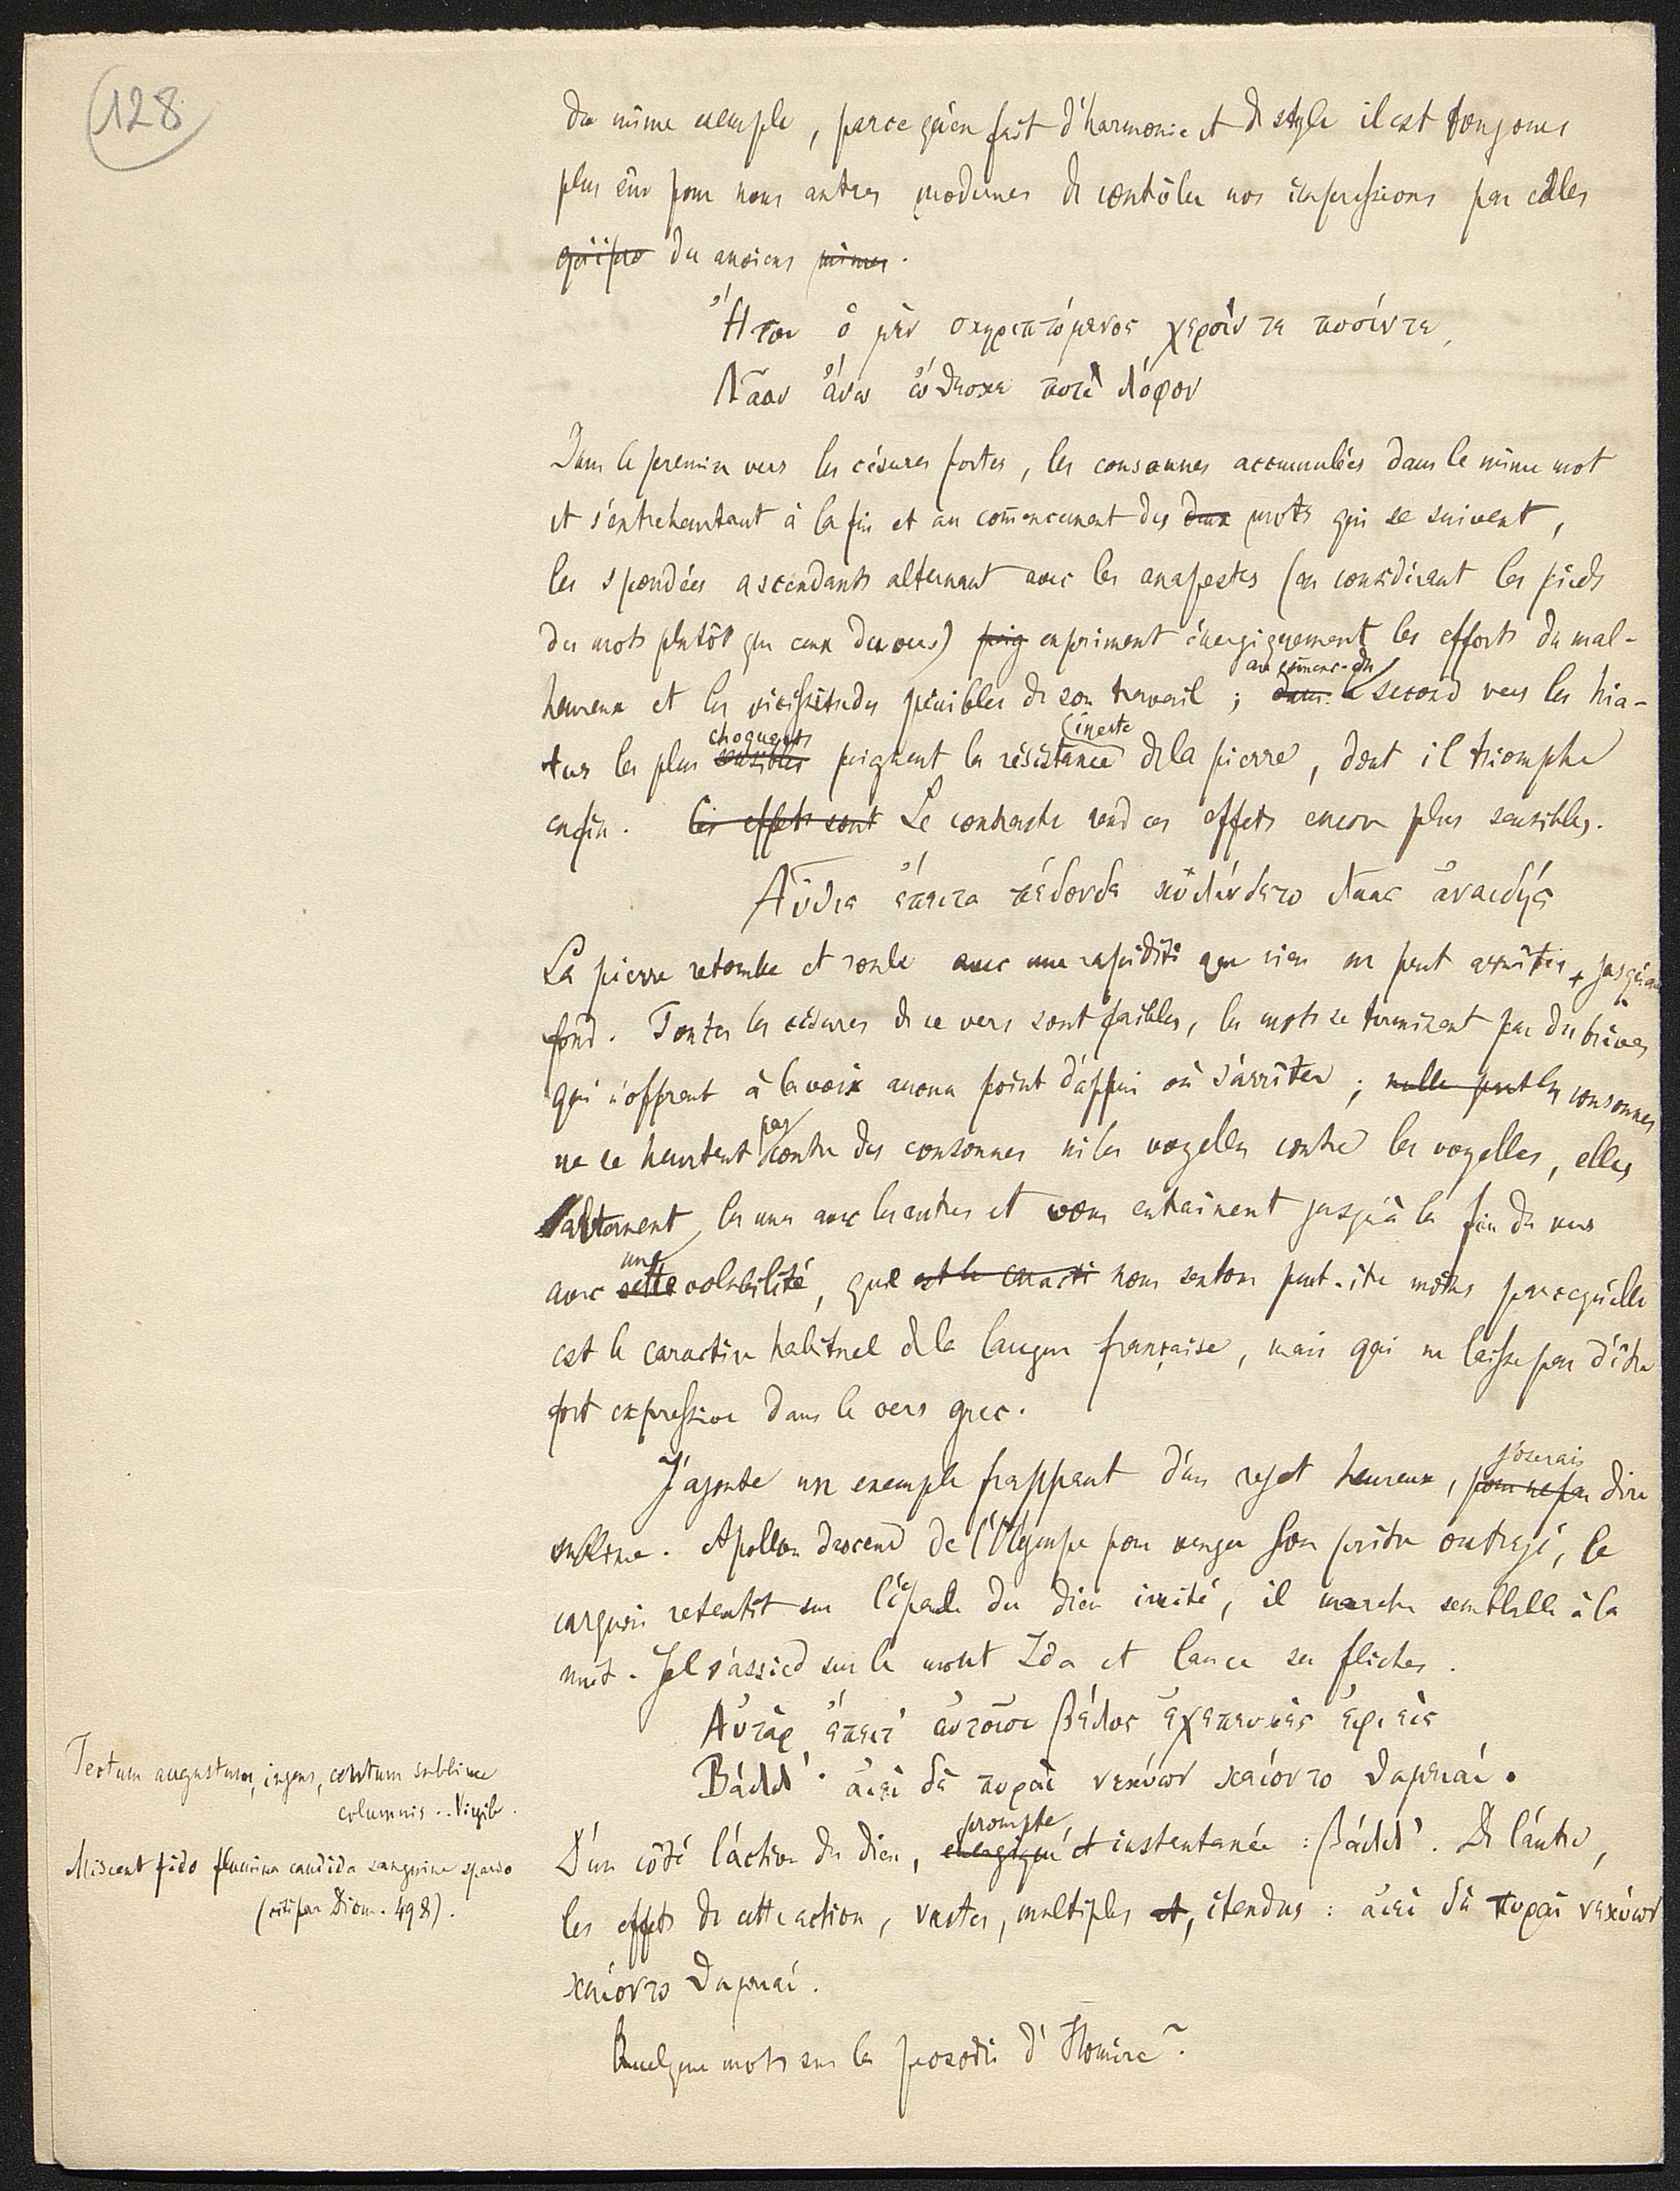 128
du même exemple, parce qu'en fait d'harmonie et de style il est toujours
plus sûr pour nous autres modernes de contrôler nos impressions par celles
des anciens mêmes.
Ἤτοι ὁ μὲν σκηριπτόμενος χερσίν τε ποσίν τε
Λᾶαν ἄνω ὤθεσκε ποτὶ λόφον
Dans le premier vers les césures fortes, les consonnes accumulées dans le même mot
et s'entreheurtant à la fin et au com̄encement des deux mots qui se suivent,
les spondées ascendants alternant avec les anapestes (en considérant les pieds
des mots plutôt que ceux du vers) peig expriment énergiquement les efforts du mal-
heureux et les vicissitudes pénibles de son travail ; dans au com̄enc. du le second vers les hia-
tus les plus sensibles choquants peignent la résistance inerte de la pierre, dont il triomphe
enfin. Ces effets sont Le contraste rend ces effets encore plus sensibles.
Αὖθις ἔπειτα πέδονδε κυλίνδετο λᾶας ἀναιδής
La pierre retombe et roule avec une rapidité que rien ne peut arrêter, jusqu'au
fond. Toutes les césures de ce vers sont faibles, les mots se terminent par des brèves
qui n'offrent à la voix aucun point d'appui où s'arrêter ; nulle part les consonnes
ne se heurtent pas contre des consonnes ni les voyelles contre les voyelles, elles
alternent les unes avec les autres et vous entraînent jusqu'à la fin du vers
avec cette une volubilité, que est le caract nous sentons peut-être moins parcequ'elle
est le caractère habituel de la langue française, mais qui ne laisse pas d'être
fort expressive dans le vers grec.
J'ajoute un exemple frappant d'un rejet heureux, pour ne pas j'oserais dire
sublime. Apollon descend de l'Olympe pour venger son prêtre outragé, le
carquois retentit sur l'épaule du dieu irrité, il marche semblable à la
nuit. Il s'assied sur le mont Ida et lance ses flèches.
Αὐτὰρ ἔπειτ' αὐτοῖσι βέλος ἐχεπευκὲς ἐφιεὶς
Βάλλ'· αἰεὶ δὲ πυραὶ νεκύων καίοντο θαμειαί.
D'un côté l'action du dieu, énergique prompte, et instantanée : βάλλ'. De l'autre,
les effets de cette action, vastes, multiples et, étendus : αἰεὶ δὲ πυραὶ νεκύων
καίοντο θαμειαί.
Quelques mots sur la prosodie d'Homère ?
Tectum augustum, ingens, centum sublime
columnis .. Virgile.
Miscent fido flumina candida sanguine sparso
(cité par Diom. 498).